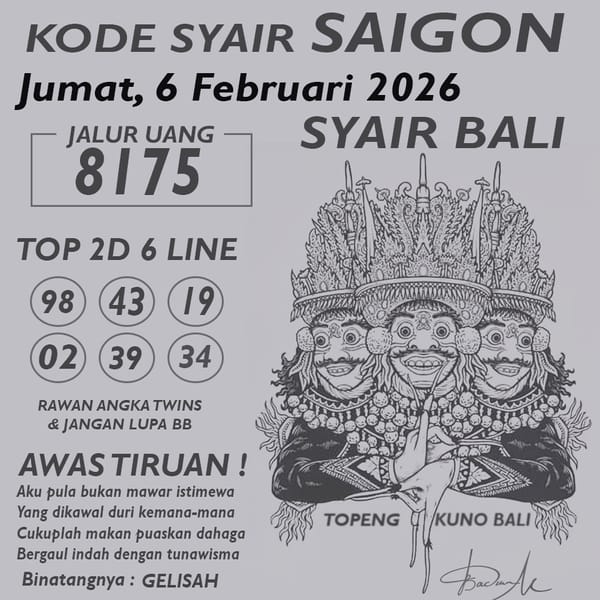 KODE SYAIR SAIGON
Jumat, 6 Februari 2026
JALUR UANG
8175
SYAIR BALI
TOP 2D 6 LINE
98 43 19
02 39 34
RAWAN ANGKA TWINS
& JANGAN LUPA BB
AWAS TIRUAN !
Aku pula bukan mawar istimewa
Yang dikawal duri kemana-mana
Cukuplah makan puaskan dahaga
Bergaul indah dengan tunawisma
Binatangnya : GELISAH
TOPENG KUNO BALI